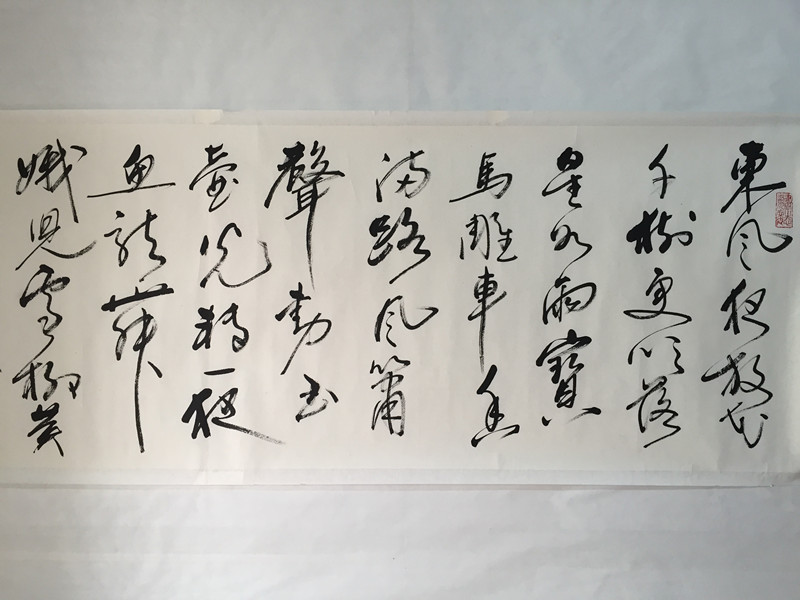 東風夜放花
千樹更吹落
星如雨寶
馬雕車香
滿路鳳簫
聲動玉
壺光轉一夜
魚龍舞
娥兒雪柳黃